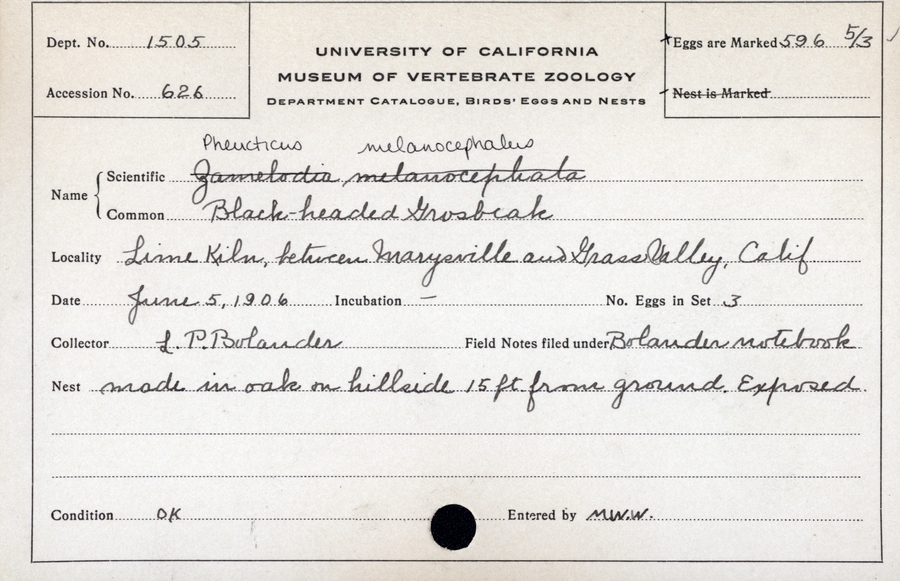 Dept. No. 1505
Accession No. 626
UNIVERSITY OF CALIFORNIA
MUSEUM OF VERTEBRATE ZOOLOGY
DEPARTMENT CATALOGUE, BIRDS' EGGS AND NESTS
Eggs are Marked 596 5/3
Nest is Marked
Pheucticus melanocephalus
Name
Scientific Zamelodia melanocephala
Common Black-headed Grosbeak
Locality Lime Kiln, between Marysville and Grass Valley, Calif
Date June 5, 1906 Incubation — No. Eggs in Set 3
Collector L. P. Bolander Field Notes filed under Bolander notebook
Nest made in oak on hillside 15 ft from ground. Exposed.
Condition OK Entered by M.W.W.